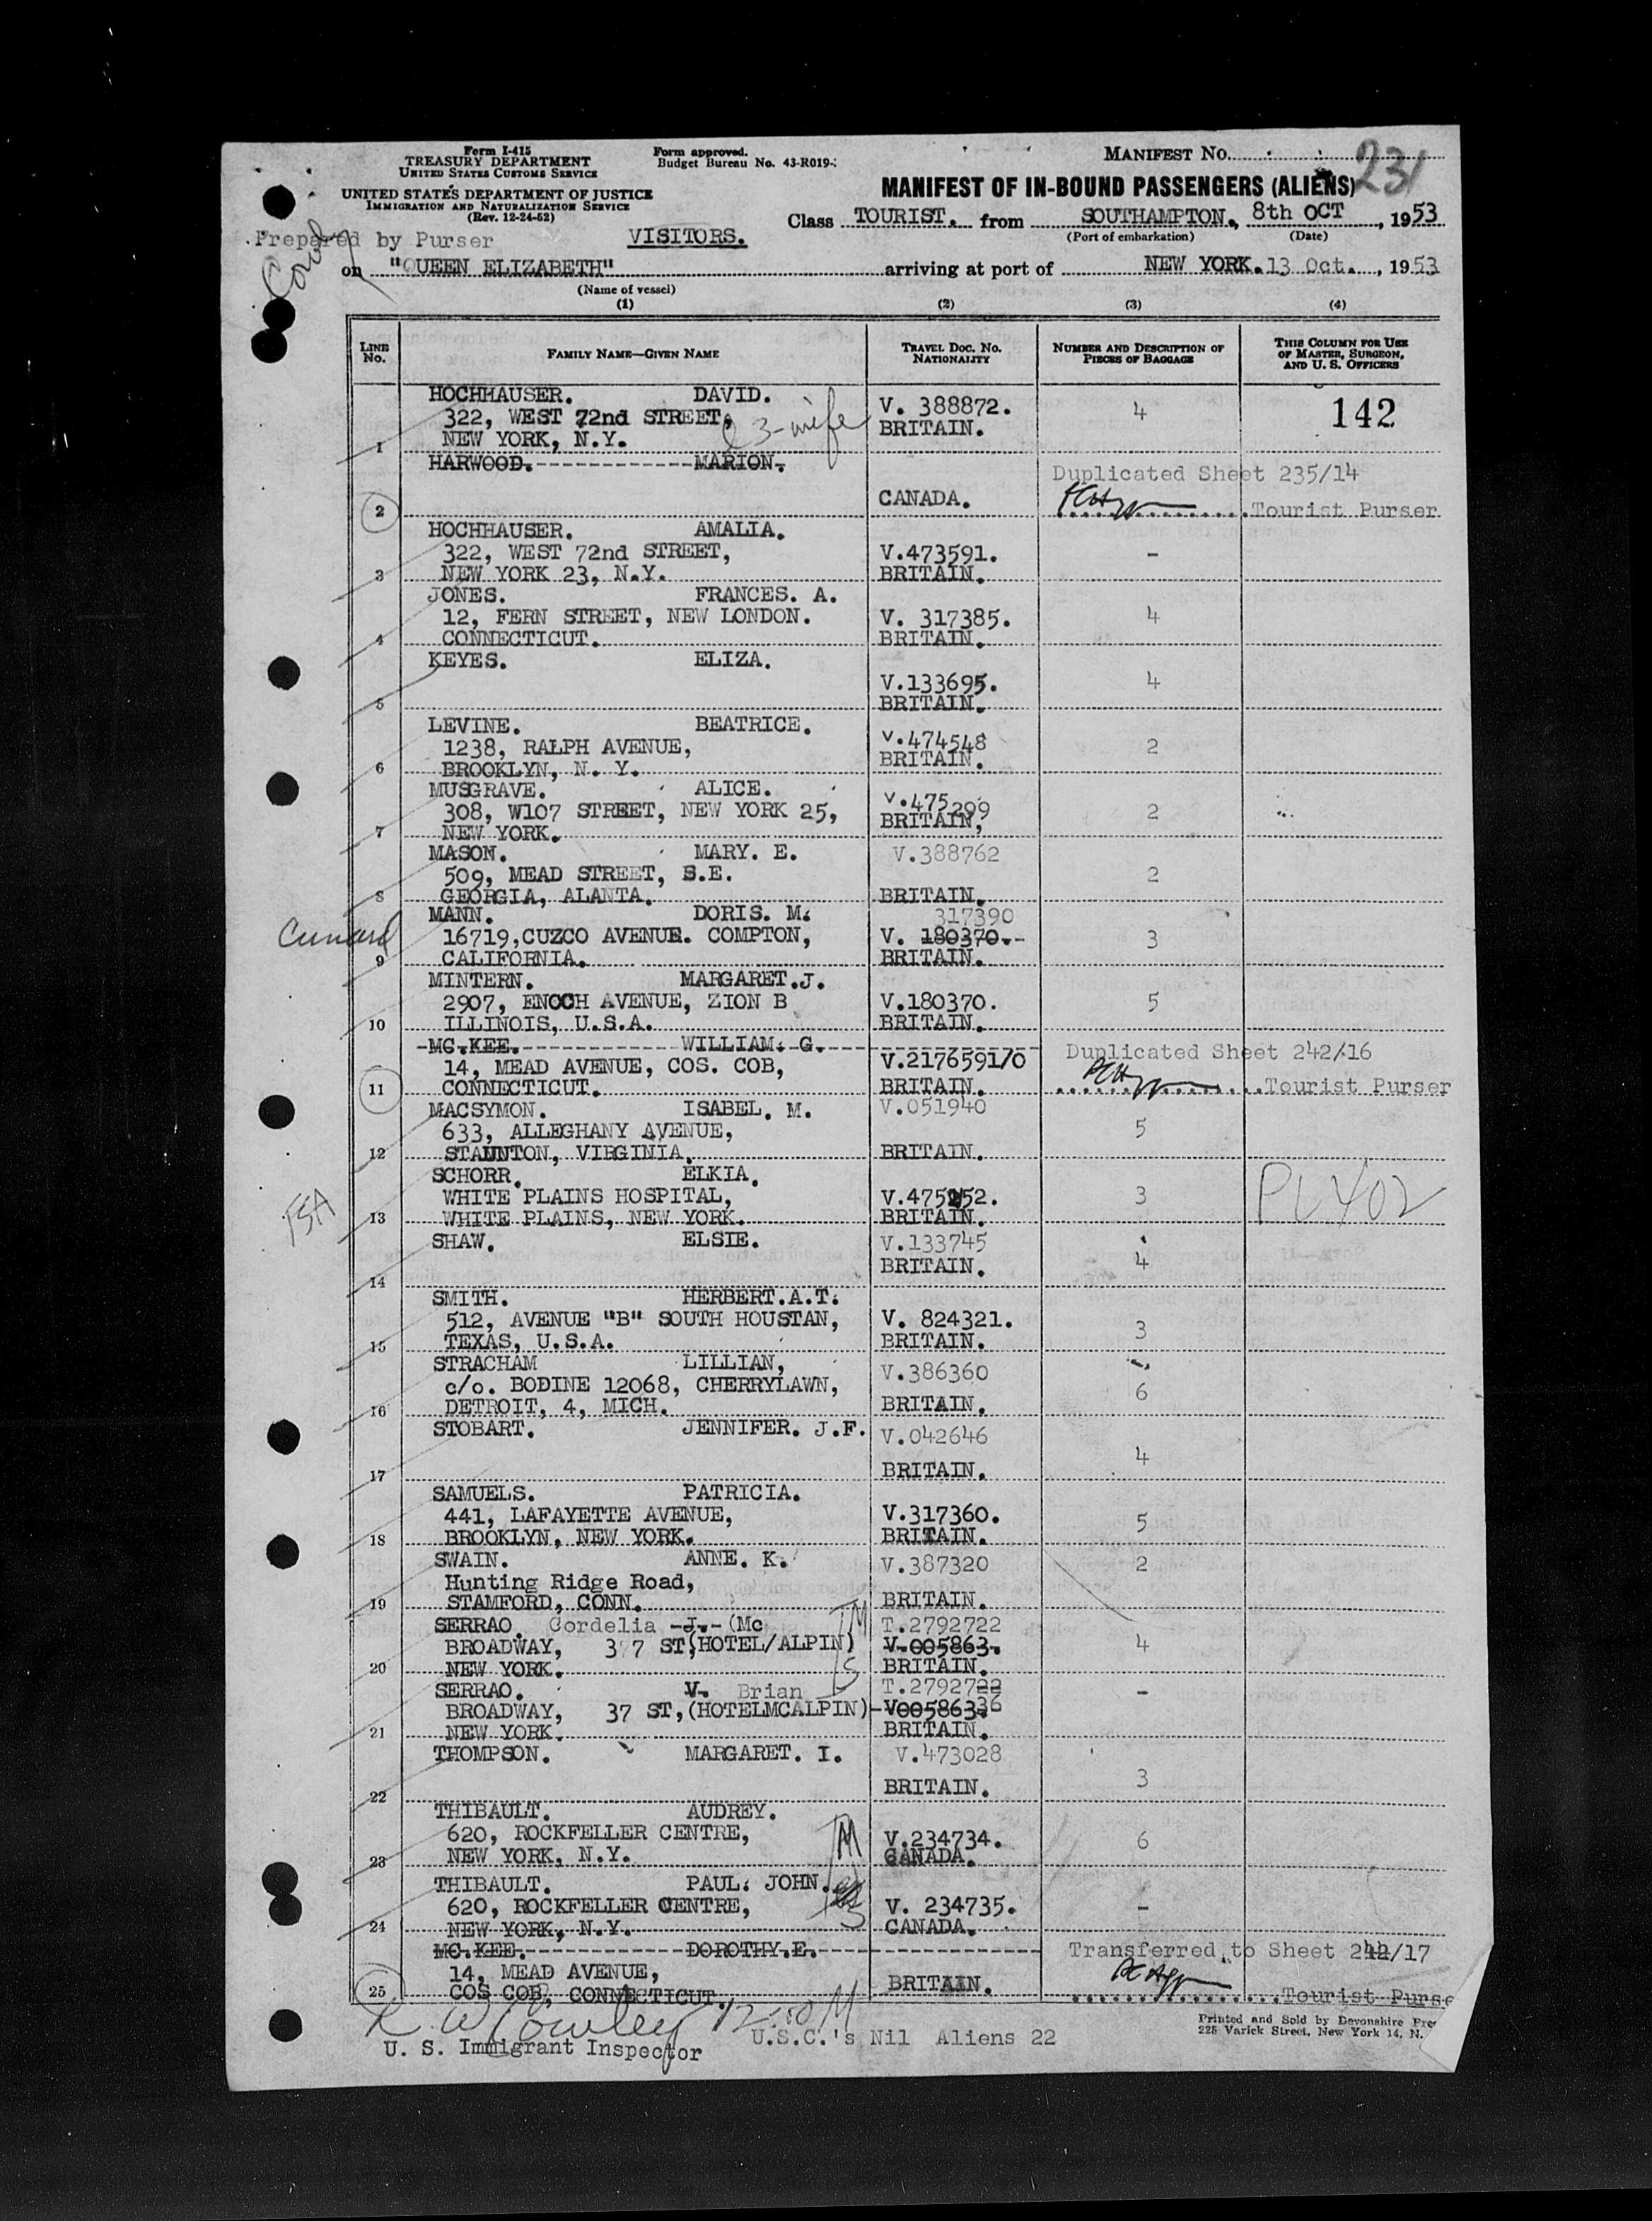 Form I-415
TREASURY DEPARTMENT
UNITED STATES CUSTOMS SERVICE
UNITED STATES DEPARTMENT OF JUSTICE
IMMIGRATION AND NATURALIZATION SERVICE
(Rev. 12-24-52)
Form approved.
Budget Bureau No. 43-R019-
MANIFEST No. 231
MANIFEST OF IN-BOUND PASSENGERS (ALIENS)
Class TOURIST. from SOUTHAMPTON., 8th OCT, 1953
(Port of embarkation) (Date)
Prepared by Purser VISITORS.
on "QUEEN ELIZABETH" arriving at port of NEW YORK. 13 Oct., 1953
(Name of vessel)
(1) (2) (3) (4)
LINE No. FAMILY NAME—GIVEN NAME TRAVEL DOC. NO. NATIONALITY NUMBER AND DESCRIPTION OF PIECES OF BAGGAGE THIS COLUMN FOR USE OF MASTER, SURGEON, AND U. S. OFFICERS
HOCHHAUSER. DAVID.
322, WEST 72nd STREET, 3-wife V. 388872. 4 142
1 NEW YORK, N.Y. BRITAIN.
HARWOOD. MARION. Duplicated Sheet 235/14
2 CANADA. Tourist Purser
HOCHHAUSER. AMALIA.
322, WEST 72nd STREET, V.473591. -
3 NEW YORK 23, N.Y. BRITAIN.
JONES. FRANCES. A.
12, FERN STREET, NEW LONDON. V. 317385. 4
4 CONNECTICUT. BRITAIN.
KEYES. ELIZA.
V.133695. 4
5 BRITAIN.
LEVINE. BEATRICE.
1238, RALPH AVENUE, V.474548 2
6 BROOKLYN, N. Y. BRITAIN.
MUSGRAVE. ALICE.
308, W107 STREET, NEW YORK 25, V.475299 2
7 NEW YORK. BRITAIN,
MASON. MARY. E. V.388762
509, MEAD STREET, S.E. 2
8 GEORGIA, ALANTA. BRITAIN.
MANN. DORIS. M. 317390
Cunard 16719,CUZCO AVENUE. COMPTON, V. 180370.- 3
9 CALIFORNIA. BRITAIN.
MINTERN. MARGARET.J.
2907, ENOCH AVENUE, ZION B V.180370. 5
10 ILLINOIS, U.S.A. BRITAIN.
MC.KEE. WILLIAM. G. Duplicated Sheet 242/16
14, MEAD AVENUE, COS. COB, V.2176591/0
11 CONNECTICUT. BRITAIN. Tourist Purser
MACSYMON. ISABEL. M. V.051940
633, ALLEGHANY AVENUE, 5
12 STAUNTON, VIRGINIA. BRITAIN.
SCHORR. ELKIA.
WHITE PLAINS HOSPITAL, V.475252. 3 PL 402
13 WHITE PLAINS, NEW YORK. BRITAIN.
SHAW. ELSIE. V.133745
BRITAIN. 4
14
SMITH. HERBERT.A.T.
512, AVENUE "B" SOUTH HOUSTAN, V. 824321. 3
15 TEXAS, U.S.A. BRITAIN.
STRACHAM LILLIAN, V.386360
c/o. BODINE 12068, CHERRYLAWN, 6
16 DETROIT, 4, MICH. BRITAIN.
STOBART. JENNIFER. J.F. V.042646
4
17 BRITAIN.
SAMUELS. PATRICIA.
441, LAFAYETTE AVENUE, V.317360. 5
18 BROOKLYN, NEW YORK. BRITAIN.
SWAIN. ANNE. K. V.387320 2
Hunting Ridge Road,
19 STAMFORD, CONN. BRITAIN.
SERRAO. Cordelia -J.- (Mc M T.2792722
BROADWAY, 37 ST,(HOTEL/ALPIN) V-005863. 4
20 NEW YORK. S BRITAIN.
SERRAO. V. Brian T.2792722 -
BROADWAY, 37 ST,(HOTELMCALPIN) V00586336
21 NEW YORK. BRITAIN.
THOMPSON. MARGARET. I. V.473028
3
22 BRITAIN.
THIBAULT. AUDREY.
620, ROCKFELLER CENTRE, M V.234734. 6
23 NEW YORK, N.Y. CANADA.
THIBAULT. PAUL. JOHN.
620, ROCKFELLER CENTRE, S V. 234735. -
24 NEW YORK, N.Y. CANADA.
MC.KEE. DOROTHY.E. Transferred to Sheet 242/17
14, MEAD AVENUE, BRITAIN.
25 COS COB, CONNECTICUT. Tourist Purse
R. W. Cowley 12:00 M
U. S. Immigrant Inspector U.S.C.'s Nil Aliens 22
Printed and Sold by Devonshire Pre
225 Varick Street, New York 14, N.